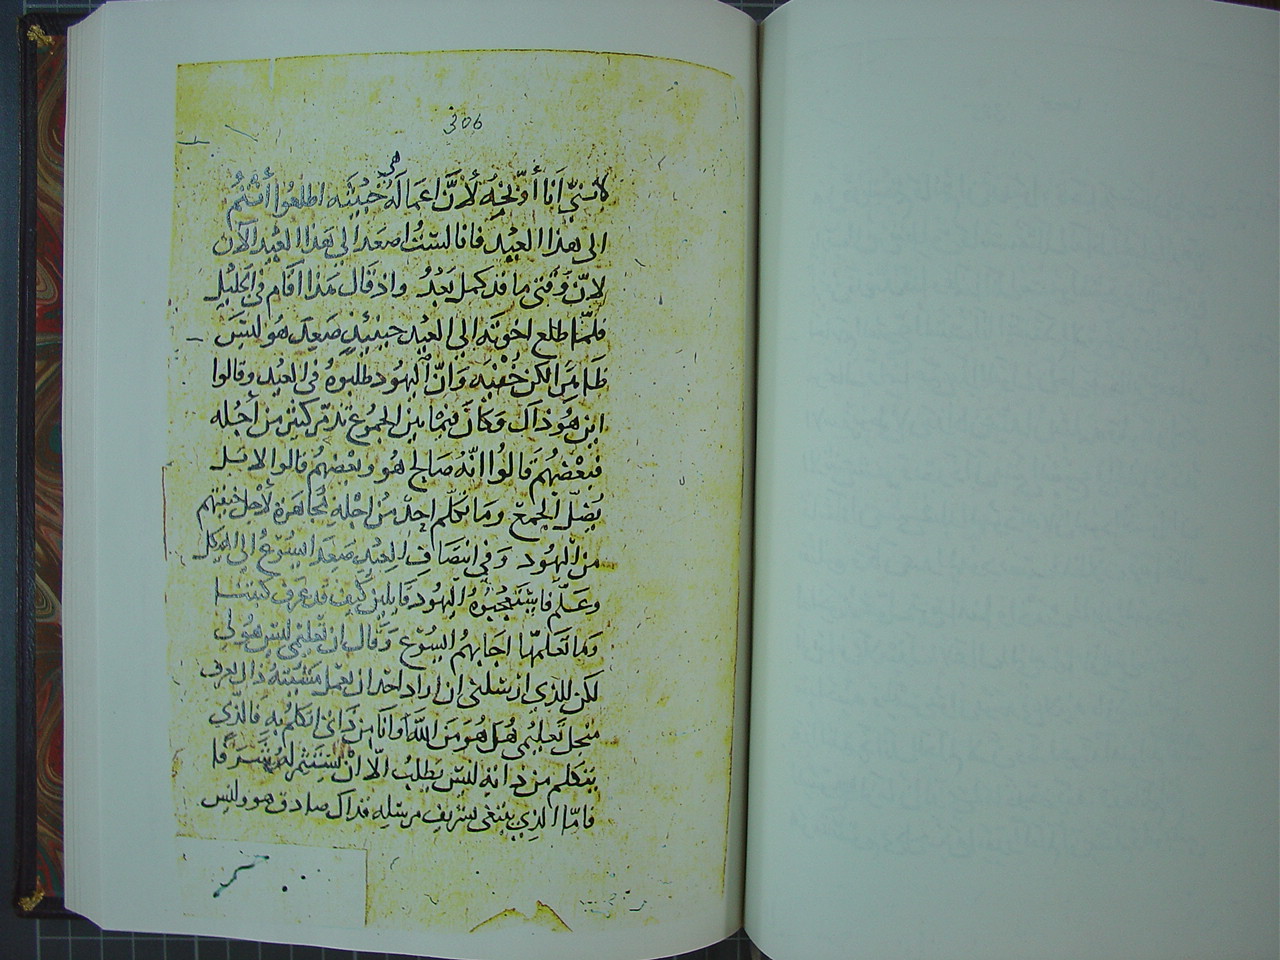 306
هي
لأنني انا أوبخه لأنَّ اعماله خبيثه اطلعوا أنتم
الى هذا العيد فانا لست اصعد الى هذا العيد الآن
لانّ وقتي ما قد كمل بعدُ واذ قال هذا اقام في الجليل
فلمّا طلع اخوته الي العيد حينيذٍ صعد هو ليسَ
ظاهرًا لكن خُفيه وانّ اليهود طلبوهُ في العيد وقالوا
اين هو ذاك وكان فيما بين الجموع تذمّر كثير من أجله
فبعضهم قالوا انّه صالح هو وبعضهم قالوا لا بل
يُضلّ الجمع وما تكلّم احدٌ من اجله مجاهرة لأجل خيفتهم
من اليهود وفي انتصاف العيد صعد ايسُوع الى الهيكل
وعلّم فاستعجبوه اليهود قايلين كيف قد عرف كتبنا
وما تعلّمها اجابهم ايسُوع وقال ان تعليمي ليس هو لي
لكن للذي ارسلني ان اراد احد ان يعمل مشيته ذاك يعرف
منجل تعليمي هل هو من الله او انا من ذاتي اتكلم به فالذي
يتكلم من ذاته ليس يطلب الّا ان
فامّا الذي يبتغي تشريف مرسله فذاك صادق هو وليس